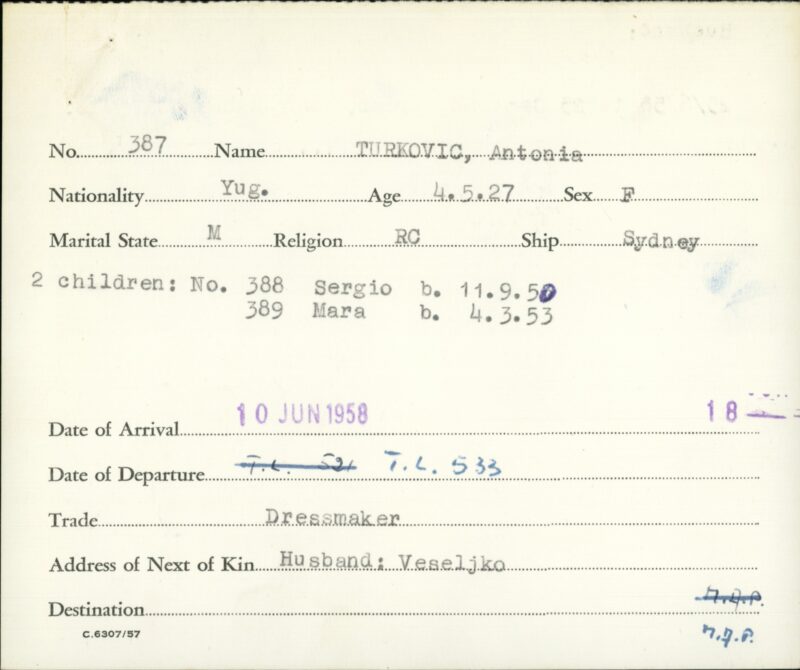 No. 387 Name TURKOVIC, Antonia
Nationality Yug. Age 4.5.27 Sex F
Marital State M Religion RC Ship Sydney
2 children: No. 388 Sergio b. 11.9.50
389 Mara b. 4.3.53
Date of Arrival 10 JUN 1958 18
Date of Departure T.L. 521 T.L. 533
Trade Dressmaker
Address of Next of Kin Husband: Veseljko
Destination
C.6307/57